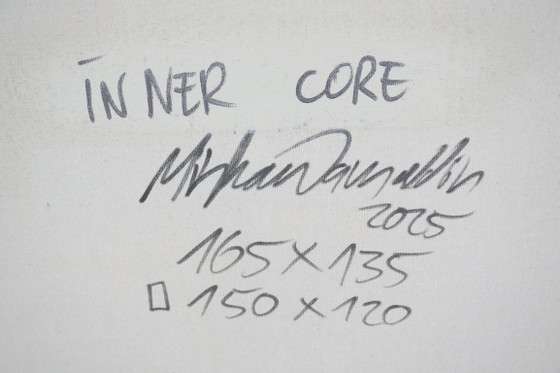 INNER CORE
2025
165 x 135
150 x 120